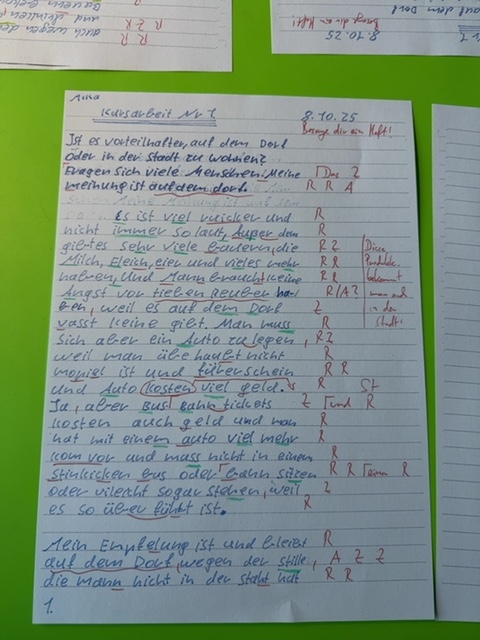 Mika
Kursarbeit Nr 1. 8.10.25
Besorge dir ein Heft!
Ist es vorteilhafter, auf dem Dorf
oder in der Stadt zu wohnen?
Fragen sich viele Menschen. Meine Das Z
meinung ist auf dem dorf. R R A
Es ist viel ruicker und R
nicht immer so laut, Auper dem R
gibt es sehr viele bauern, die R Z Diese
Milch, Fleich, eier und vieles mehr R R Produkte
haben, und Mann braucht keine R R bekommt
Angst vor tieben Reuber ha R/A? man auch
ben, weil es auf dem Dorf Z in der
vasst keine gibt. Man muss R Stadt!
Sich aber ein Auto zu legen, R Z
weil man übehaubt nicht R
mopiel ist und fürerschein R R
und Auto kosten viel geld. R St
Ja, aber Bus/Bahn tickets Z und R
kosten auch geld und man R
hat mit einem auto viel mehr R
kom vor und muss nicht in einem R
stinkicken bus oder bahn sitzen R R einer R
oder vileicht sogar stehen, weil Z
es so über führt ist. R
Mein Empfelung ist und bleibt R
auf dem Dorf, wegen der stille, A Z Z
die mann nicht in der staht hat R R
1.
8.10.25
Besorge dir ein Heft!
auf dem Dorf
auch wegen der R R
und R Z R